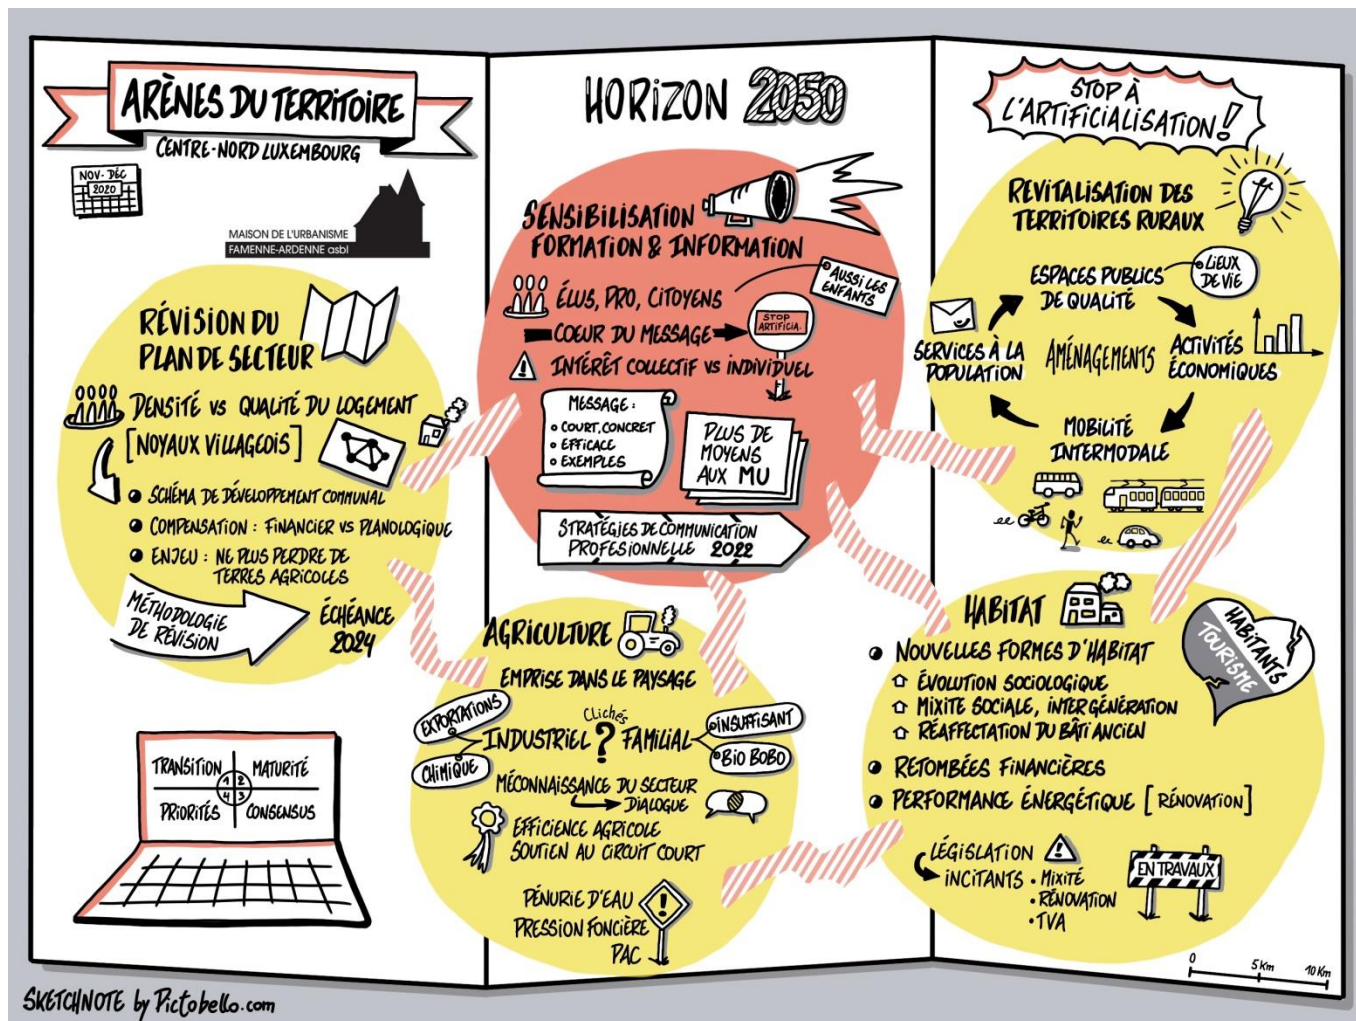 ARÈNES DU TERRITOIRE
CENTRE-NORD LUXEMBOURG
NOV-DÉC
2020
MAISON DE L'URBANISME
FAMENNE-ARDENNE asbl
RÉVISION DU
PLAN DE SECTEUR
DENSITÉ VS QUALITÉ DU LOGEMENT
[NOYAUX VILLAGEOIS]
SCHÉMA DE DÉVELOPPEMENT COMMUNAL
COMPENSATION : FINANCIER VS PLANOLOGIQUE
ENJEU : NE PLUS PERDRE DE
TERRES AGRICOLES
MÉTHODOLOGIE
DE RÉVISION
ÉCHÉANCE
2024
TRANSITION
MATURITÉ
1 2
4 3
PRIORITÉS
CONSENSUS
HORIZON 2050
SENSIBILISATION
FORMATION & INFORMATION
ÉLUS, PRO, CITOYENS
AUSSI LES
ENFANTS
COEUR DU MESSAGE
STOP
ARTIFICIA.
INTÉRÊT COLLECTIF VS INDIVIDUEL
MESSAGE :
COURT, CONCRET
EFFICACE
EXEMPLES
PLUS DE
MOYENS
AUX MU
STRATÉGIES DE COMMUNICATION
PROFESIONNELLE 2022
AGRICULTURE
EMPRISE DANS LE PAYSAGE
EXPORTATIONS
CHIMIQUE
Clichés
INDUSTRIEL ? FAMILIAL
INSUFFISANT
BIO BOBO
MÉCONNAISSANCE DU SECTEUR
DIALOGUE
EFFICIENCE AGRICOLE
SOUTIEN AU CIRCUIT COURT
PÉNURIE D'EAU
PRESSION FONCIÈRE
PAC
!
STOP À
L'ARTIFICIALISATION !
REVITALISATION DES
TERRITOIRES RURAUX
ESPACES PUBLICS
DE QUALITÉ
LIEUX
DE VIE
SERVICES À LA
POPULATION
AMÉNAGEMENTS
ACTIVITÉS
ÉCONOMIQUES
MOBILITÉ
INTERMODALE
HABITAT
HABITANTS
TOURISME
NOUVELLES FORMES D'HABITAT
ÉVOLUTION SOCIOLOGIQUE
MIXITÉ SOCIALE, INTERGÉNÉRATION
RÉAFFECTATION DU BÂTI ANCIEN
RETOMBÉES FINANCIÈRES
PERFORMANCE ÉNERGÉTIQUE [RÉNOVATION]
LÉGISLATION
INCITANTS
• MIXITÉ
• RÉNOVATION
• TVA
EN TRAVAUX
0 5 Km 10 Km
SKETCHNOTE by Pictobello.com